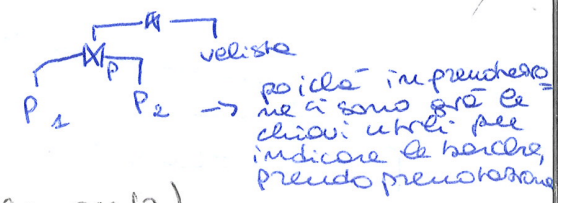 velista
P
P1 P2 → poiché in prenotazio=
ne ci sono già le
chiavi utili per
indicare le barche,
prendo prenotazione